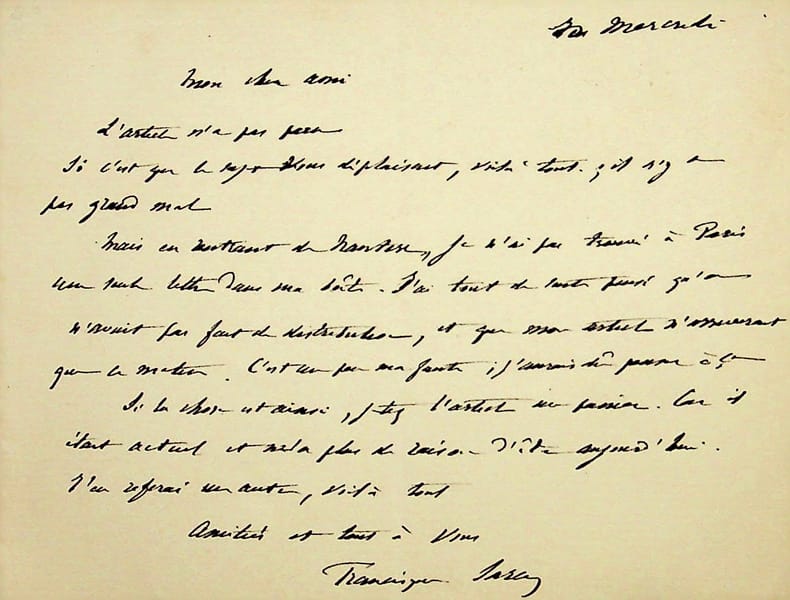 Mercredi
Mon cher ami
L'article n'a pas paru
Si c'est que le sujet vous déplaisait, voilà tout. il n'y a
pas grand mal
Mais en rentrant de Nanterre, je n'ai pas trouvé à Paris
une seule lettre dans ma boîte. J'ai tout de suite pensé qu'on
n'avait pas fait de distribution, et que mon article n'arriverait
que ce matin. C'est un peu ma faute ; j'aurais dû penser à ça
Si la chose est ainsi, jetez l'article au panier. Car il
était actuel et n'a plus de raison d'être aujourd'hui.
J'en referai un autre, voilà tout
Amitiés et tout à vous
Francisque Sarcey